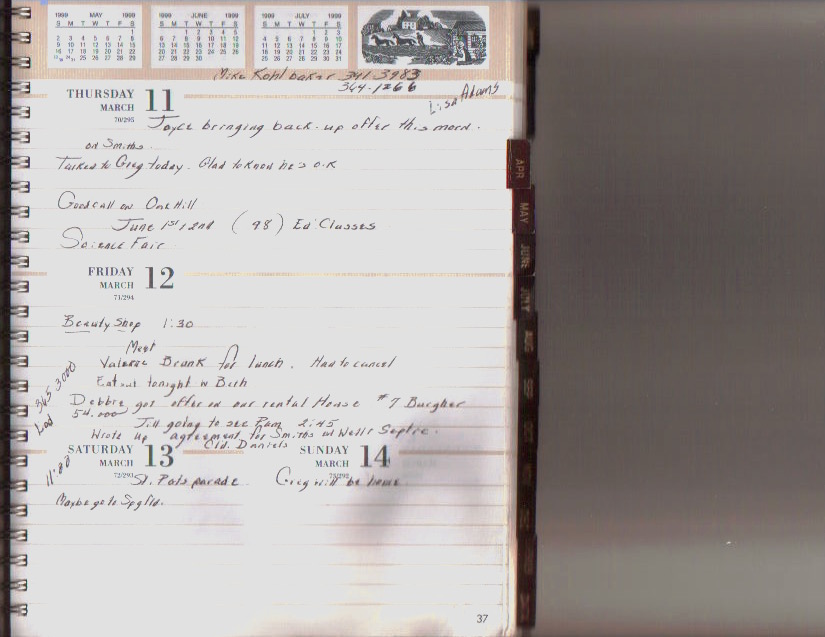 1999 MAY 1999
S M T W T F S
1
2 3 4 5 6 7 8
9 10 11 12 13 14 15
16 17 18 19 20 21 22
23/30 24/31 25 26 27 28 29
1999 JUNE 1999
S M T W T F S
1 2 3 4 5
6 7 8 9 10 11 12
13 14 15 16 17 18 19
20 21 22 23 24 25 26
27 28 29 30
1999 JULY 1999
S M T W T F S
1 2 3
4 5 6 7 8 9 10
11 12 13 14 15 16 17
18 19 20 21 22 23 24
25 26 27 28 29 30 31
Mike Kohlbaker 341-3983
344-1266
Lisa Adams
THURSDAY 11
MARCH
70/295
Joyce bringing back-up offer this morn.
on Smiths.
Talked to Greg today. Glad to know he's O.K
Good call on One Hill
June 1st/2nd (98) Ed Classes
Science Fair
FRIDAY 12
MARCH
71/294
Beauty Shop 1:30
Meet
Valerie Brank for lunch. Had to cancel
Eat out tonight w Beth
Debbie got offer on our rental House #7 Burgher
54,000
Jill going to see Pam 2:45
Wrote up agreement for Smiths w/ Wells Septic.
Cld. Daniels
365 3000
Lod
11:00
SATURDAY 13
MARCH
72/293
St. Pats parade
Maybe go to Spgfld.
SUNDAY 14
MARCH
73/292
Greg will be home
APR
MAY
JUNE
JULY
AUG
SEP
OCT
37